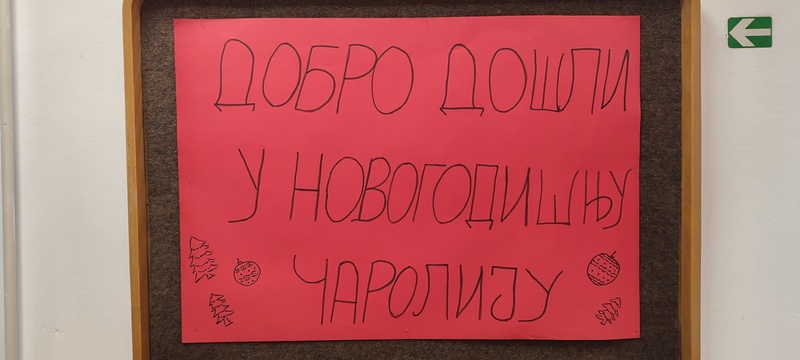 ДОБРО ДОШЛИ
У НОВОГОДИШЊУ
ЧАРОЛИЈУ